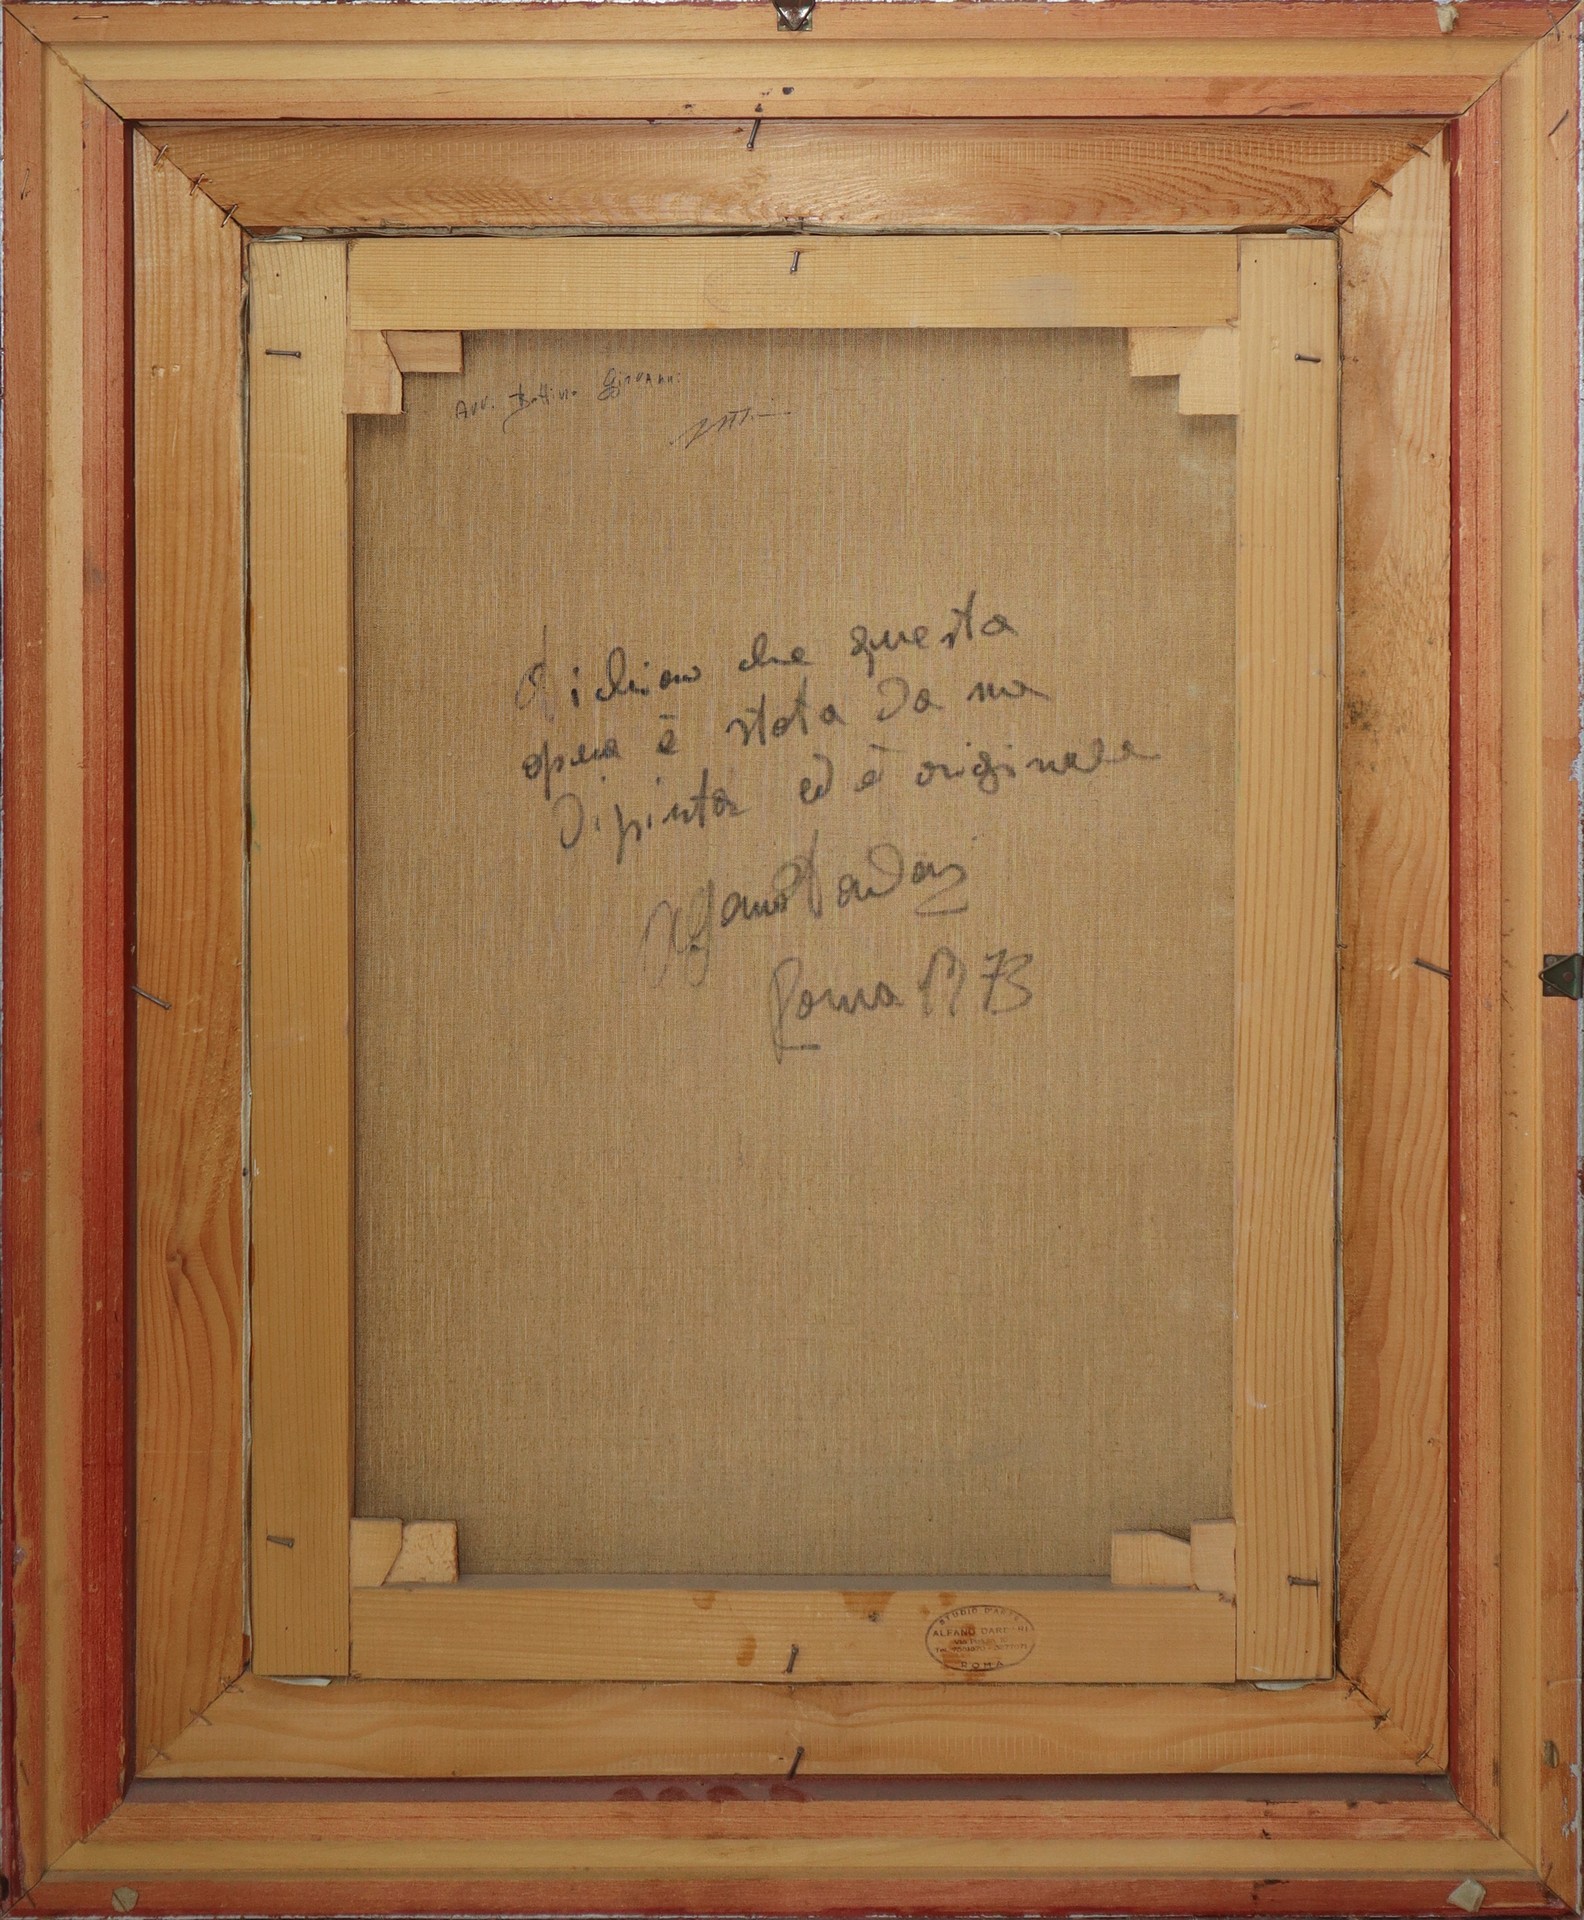 Avv. Giovanni
Dichiaro che questa
opera è stata da me
dipinta ed è originale
Alfano Dardari
Roma 1973
STUDIO D'ARTE
ALFANO DARDARI
ROMA